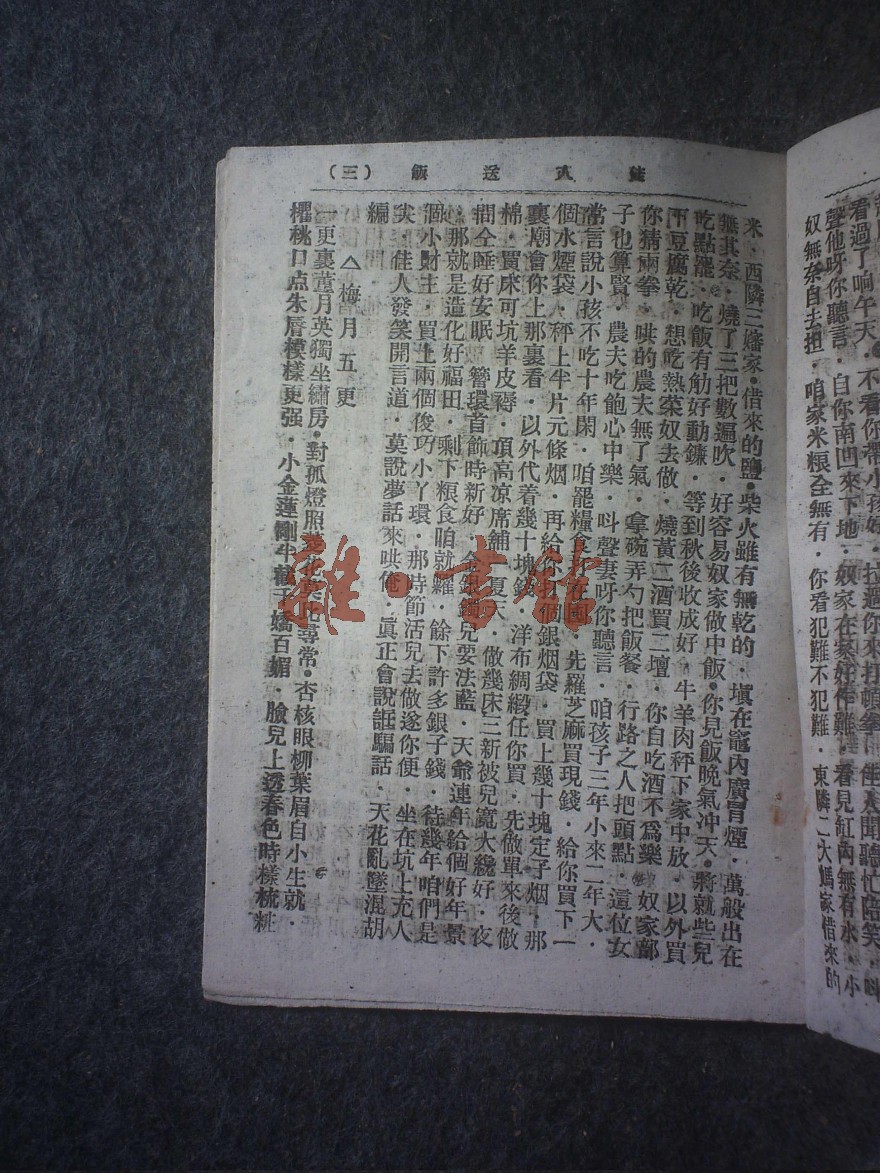 看過了晌午天
不看你帶小孩好
聲他呀你聽言．自你南凹來下地．奴家在家好作難．看見缸內無有水．小
奴無奈自去担．咱家米粮全無有．你看犯難不犯難．東隣二大媽家借來的
送飯（三）
米．西隣三嬸家．借來的鹽．柴火雖有無乾的．塡在竈內廣冐煙．萬般出在
無其奈．燒了三把數遍吹．好容易奴家做中飯．你見飯晚氣冲天．將就些兒
吃點罷．吃飯有觔好動鐮．等到秋後收成好．牛羊肉秤下家中放．以外買
下豆腐乾．想吃熱菜奴去做．燒黃二酒買二壇．你自吃酒不爲樂．奴家部
你猜兩拳．哄的農夫無了氣．拿碗弄勺把飯餐．行路之人把頭點．這位女
子也算賢．農夫吃飽心中樂．呌聲妻呀你聽言．咱孩子三年小來二年大．
常言說小孩不吃十年閑．咱罷糧食　在囤．先羅芝麻買現錢．給你買下一
個水煙袋．秤上半片元條烟．再給你　個銀烟袋．買上幾十塊定子烟．那
裏廟會你上那裏看．以外代着幾十塊錢．洋布綢緞任你買．先做單來後做
棉．買床可坑羊皮褥．頂高凉席舖　夏天．做幾床三新被兒寬大纔好．夜
間仝睡好安眠．簪環首飾時新好．金銀鐲兒要法藍．天爺連年給個好年景
．那就是造化好福田．剩下粮食咱就糶．餘下許多銀子錢．待幾年咱們是
個小財主．買上兩個俊巧小丫環．那時節活兒去做遂你便．坐在坑上充人
尖．佳人發笑開言道．莫說夢話來哄俺．眞正會說誑騙話．天花亂墜混胡
編
△梅月五更
一更裏董月英獨坐繡房．對孤燈照　　　　尋常．杏核眼柳葉眉自小生就．
櫻桃口点朱唇模樣更强．小金蓮剛半　千嬌百媚．臉兒上透春色時樣梳粧
雜·書館